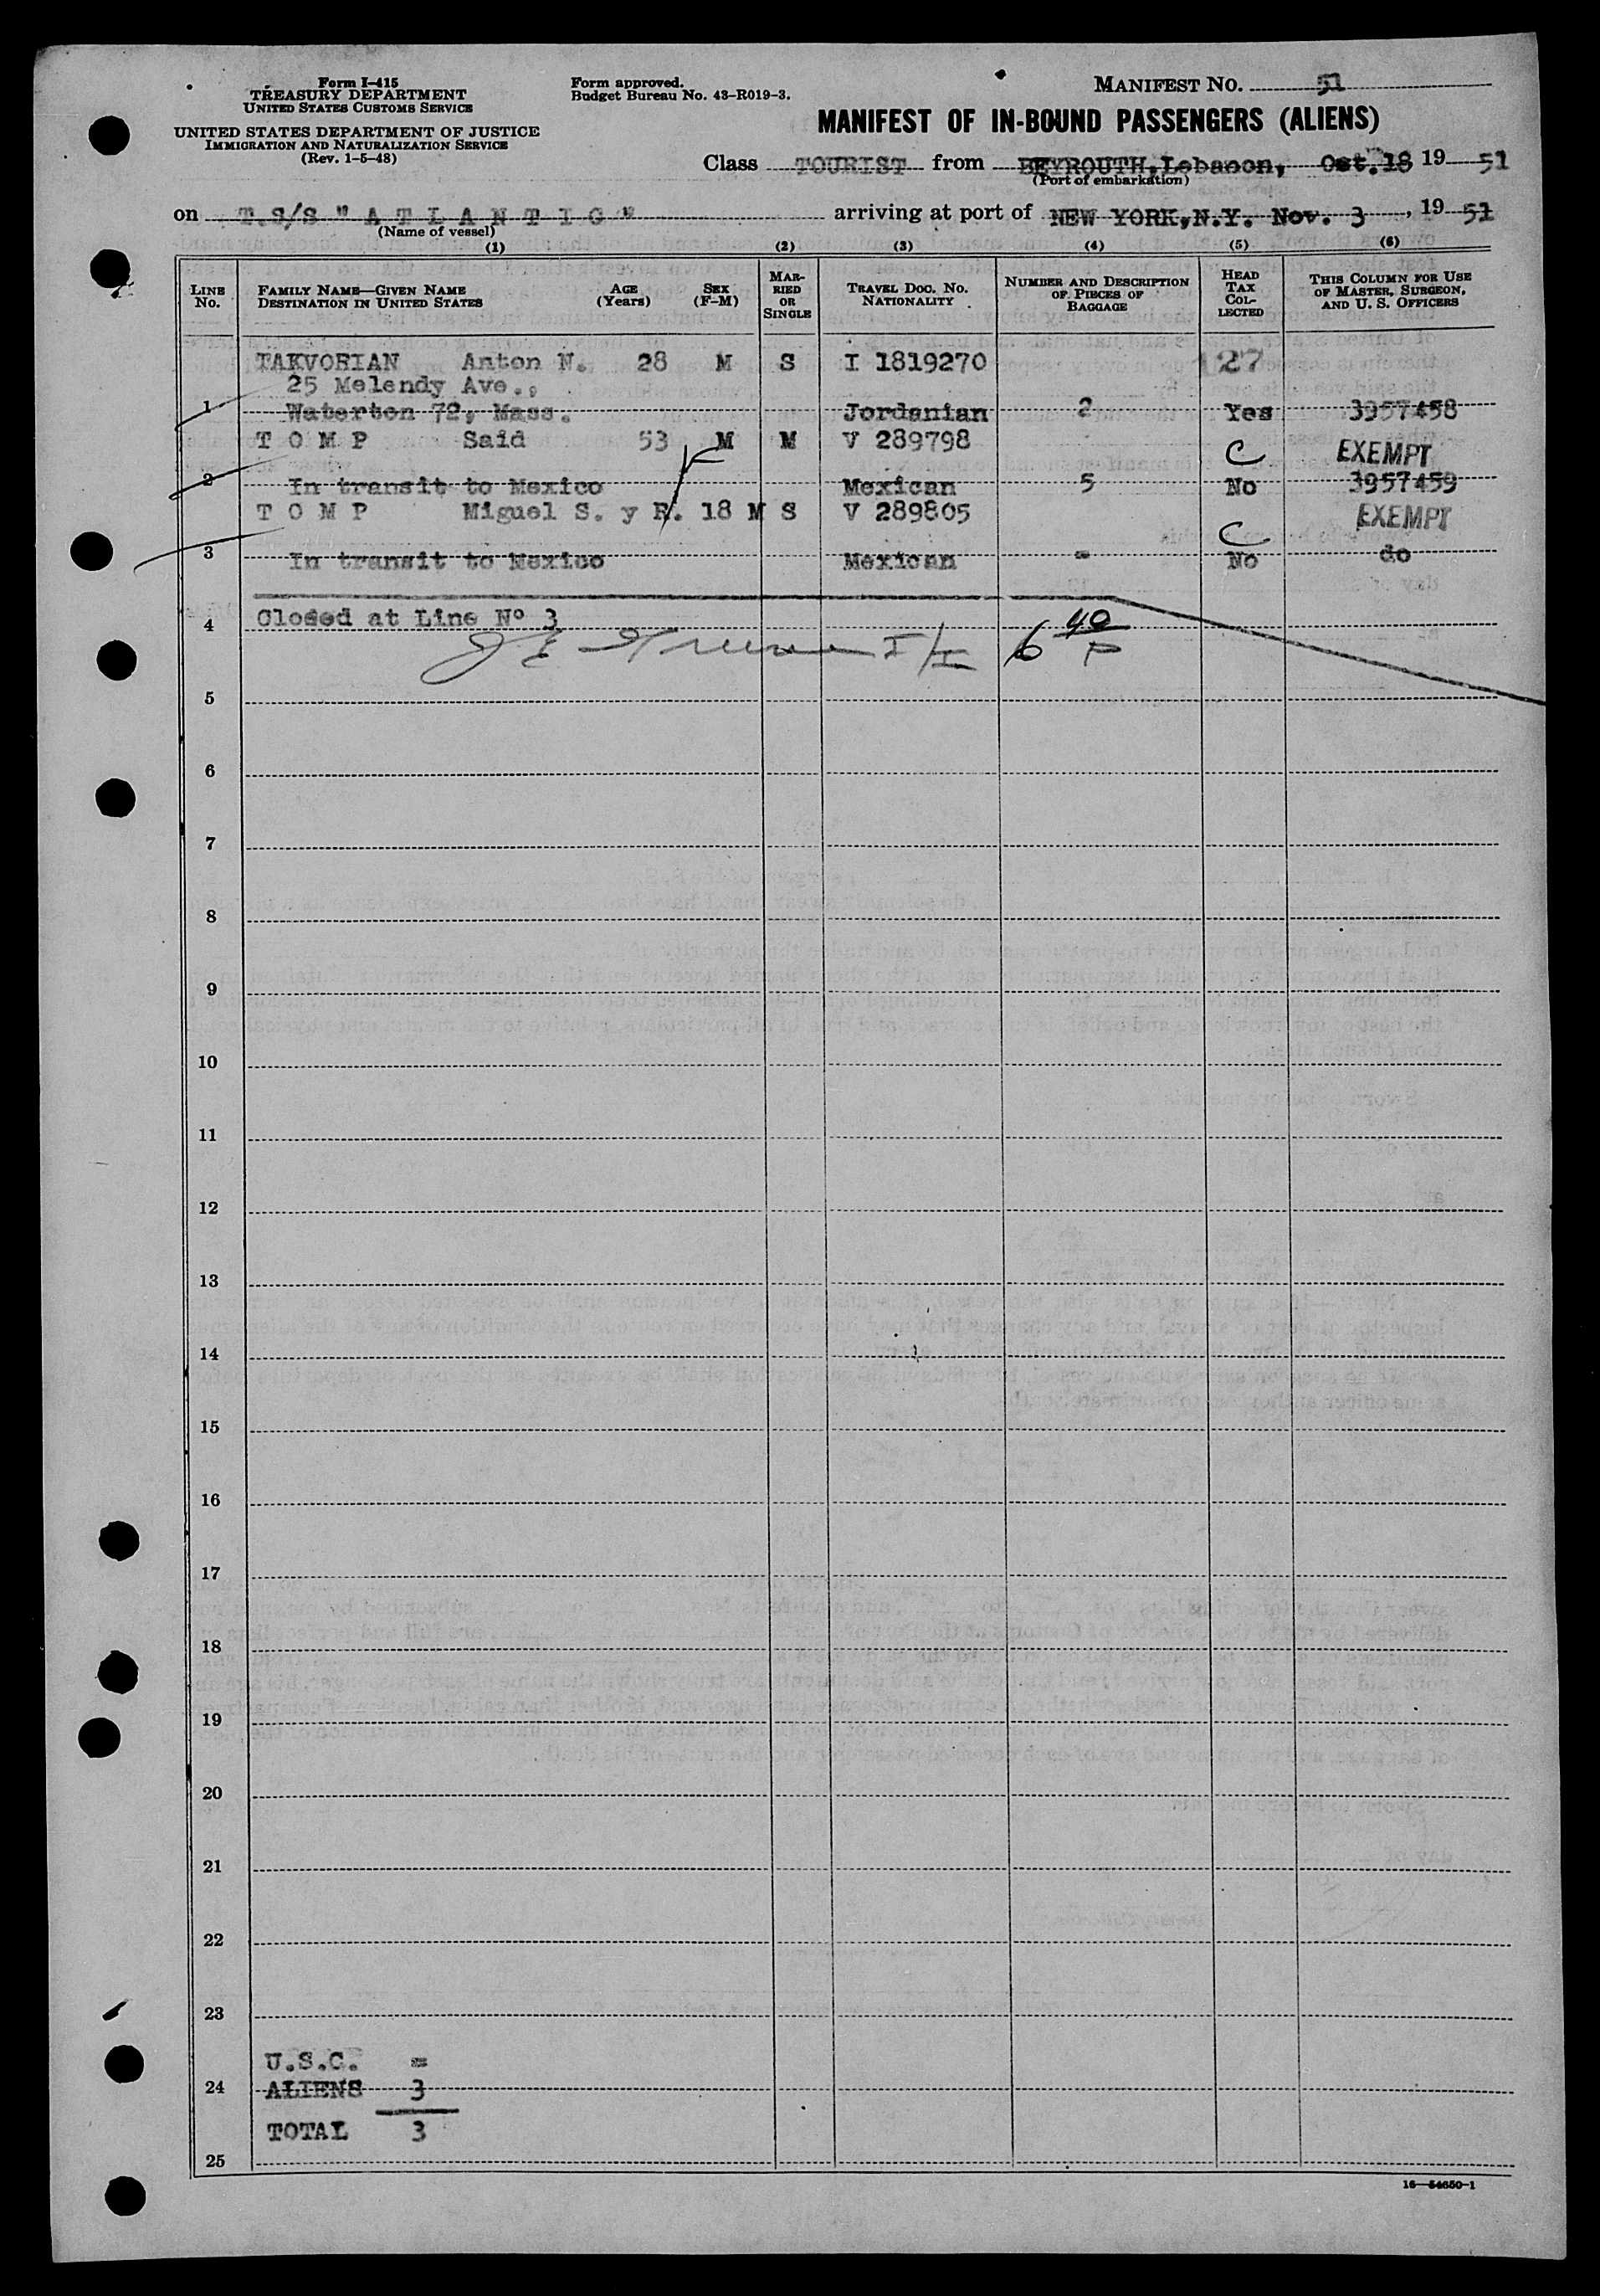 Form I-415
TREASURY DEPARTMENT
UNITED STATES CUSTOMS SERVICE
UNITED STATES DEPARTMENT OF JUSTICE
IMMIGRATION AND NATURALIZATION SERVICE
(Rev. 1-5-48)
Form approved.
Budget Bureau No. 43-R019-3.
MANIFEST NO. 51
MANIFEST OF IN-BOUND PASSENGERS (ALIENS)
Class TOURIST from BEYROUTH, Lebanon, Oct. 18 19 51
(Port of embarkation)
on T.S/S "ATLANTIC" arriving at port of NEW YORK, N.Y. Nov. 3, 19 51
(Name of vessel)
(1) (2) (3) (4) (5) (6)
LINE No. FAMILY NAME—GIVEN NAME DESTINATION IN UNITED STATES AGE (Years) SEX (F-M) MARRIED OR SINGLE TRAVEL DOC. NO. NATIONALITY NUMBER AND DESCRIPTION OF PIECES OF BAGGAGE HEAD TAX COLLECTED THIS COLUMN FOR USE OF MASTER, SURGEON, AND U. S. OFFICERS
TAKVORIAN Anton N. 28 M S I 1819270 127
25 Melendy Ave.,
1 Waterton 72, Mass. Jordanian 2 Yes 3957458
T O M P Said 53 M M V 289798 C EXEMPT
2 In transit to Mexico Mexican 5 No 3957459
T O M P Miguel S. y R. 18 M S V 289805 C EXEMPT
3 In transit to Mexico Mexican - No do
4 Closed at Line Nº 3
I/I 6 40/P
5
6
7
8
9
10
11
12
13
14
15
16
17
18
19
20
21
22
23
U.S.C. =
24 ALIENS 3
TOTAL 3
25
16—54650-1